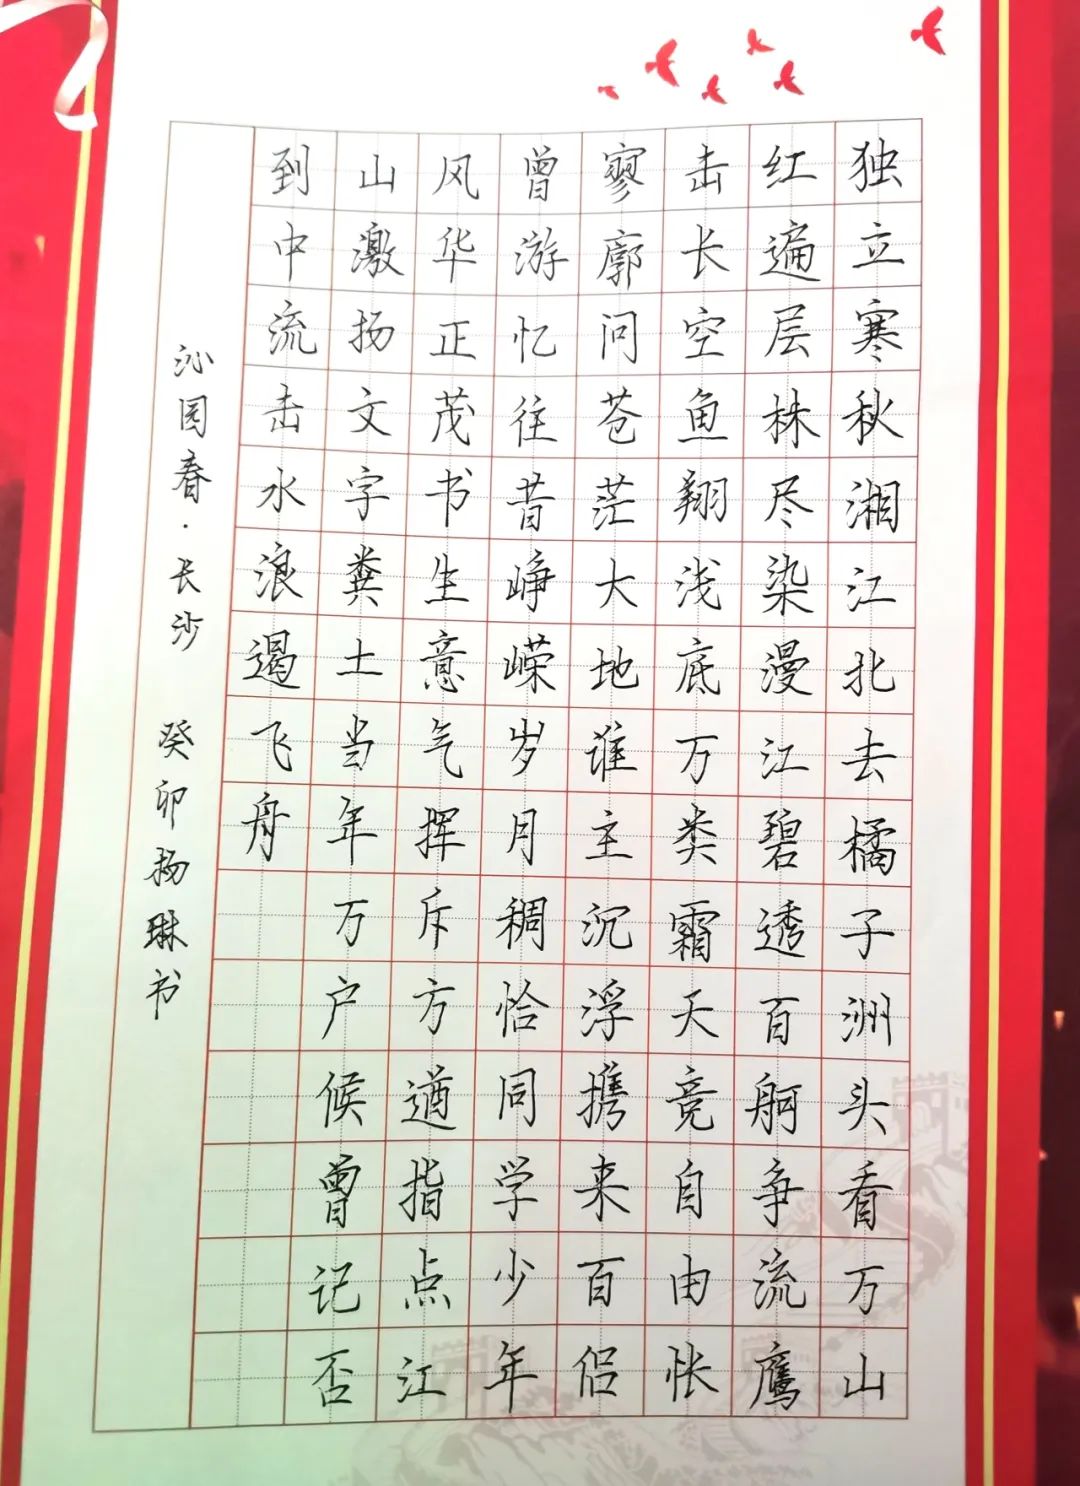 独立寒秋湘江北去橘子洲头看万山
红遍层林尽染漫江碧透百舸争流鹰
击长空鱼翔浅底万类霜天竞自由怅
寥廓问苍茫大地谁主沉浮携来百侣
曾游忆往昔峥嵘岁月稠恰同学少年
风华正茂书生意气挥斥方遒指点江
山激扬文字粪土当年万户候曾记否
到中流击水浪遏飞舟
沁园春·长沙 癸卯杨琳书